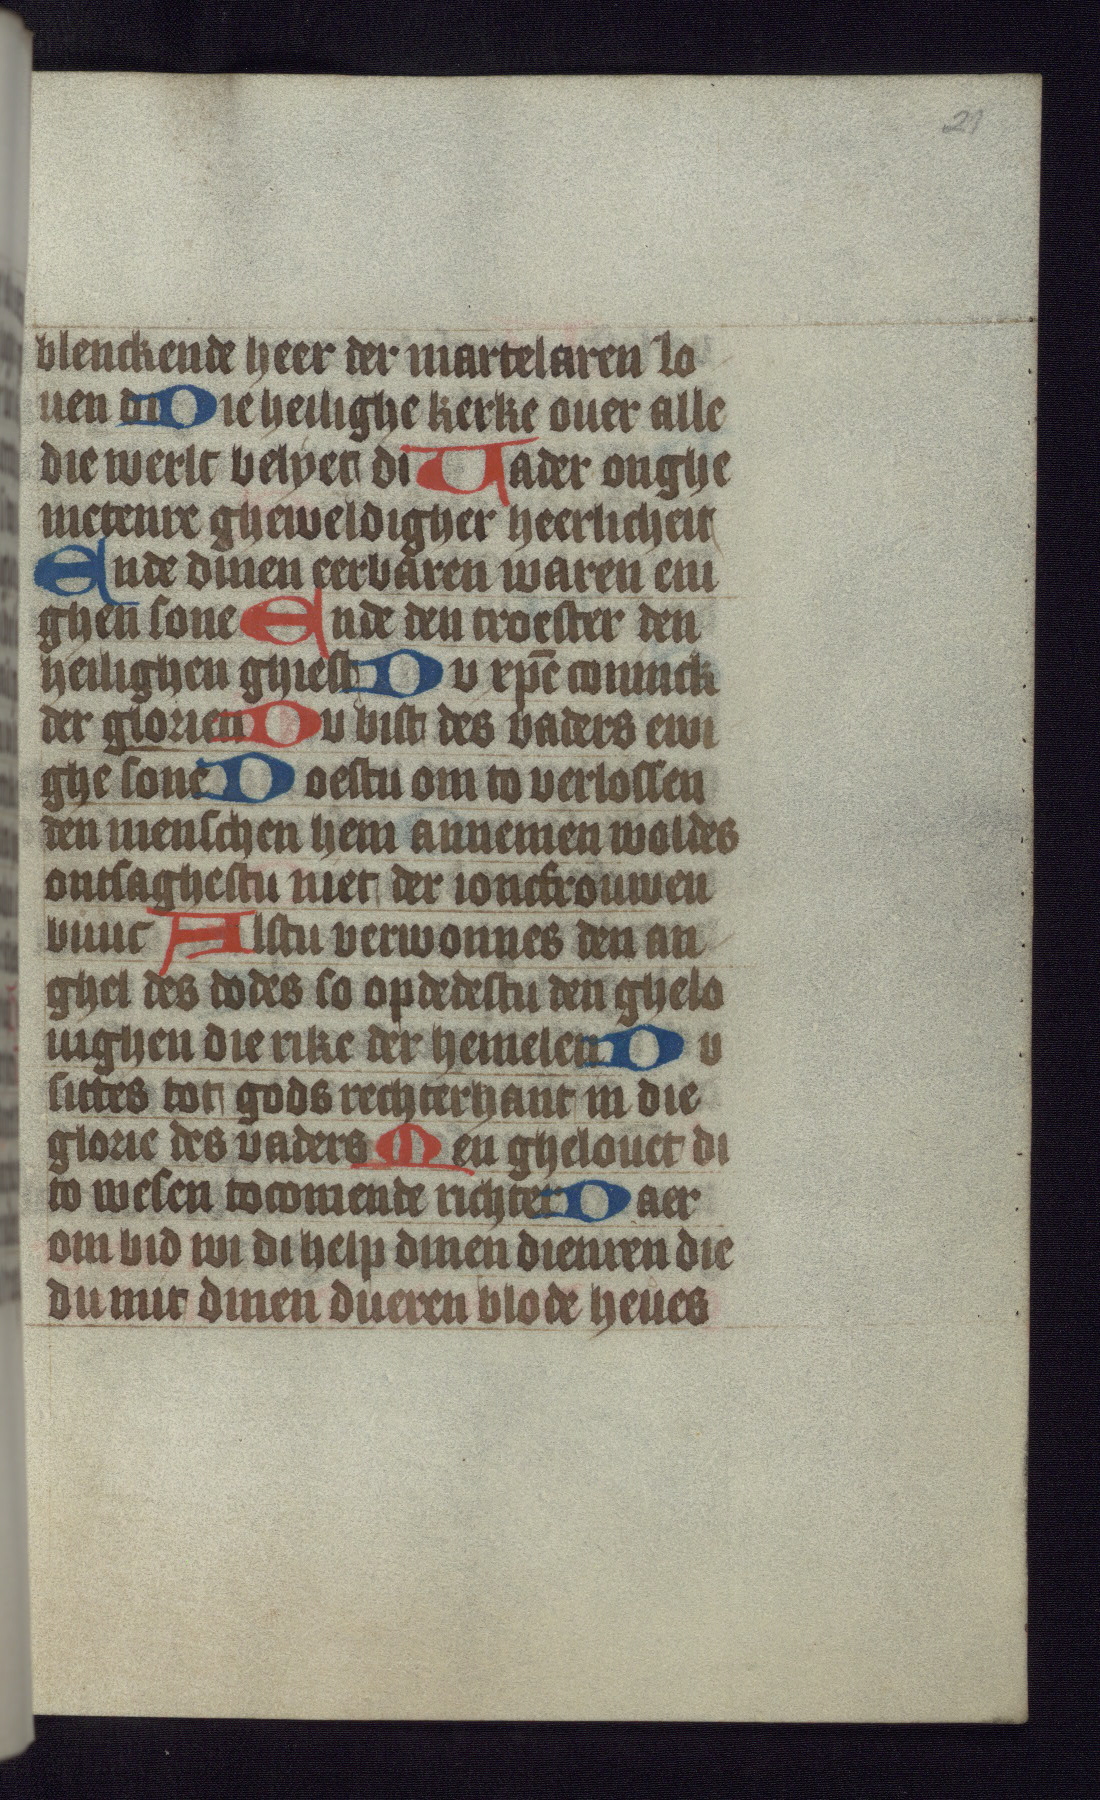 21
blenckende heer der martelaren lo
uen di Die heilighe kerke ouer alle
die werlt belyet di Vader onghe
metenre gheweldigher heerlicheit
Ende dinen eerbaren waren eni
ghen sone Ende den troester den
heilighen ghiest Du xpc̄ coninck
der glorien Du bist des vaders ewi
ghe sone Doestu om to verlossen
den menschen hem annemen woldes
ontsaghestu niet der ioncfrouwen
buuc Alstu verwonnes den an
ghel des dodes so opdedestu den ghelo
uighen die rike der hemelen Du
sittes tot gods rechterhant in die
glorie des vaders Men ghelouet di
to wesen tocomende richter Daer
om bid wi di help dinen dienren die
du mit dinen dueren blode heues